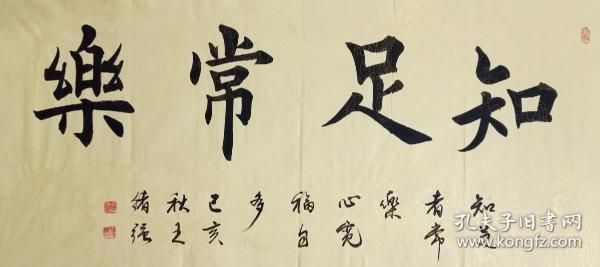 知足常樂
知足
者常
樂
心寬
福自
多
己亥
秋王
绪强
孔夫子旧书网
www.kongfz.com